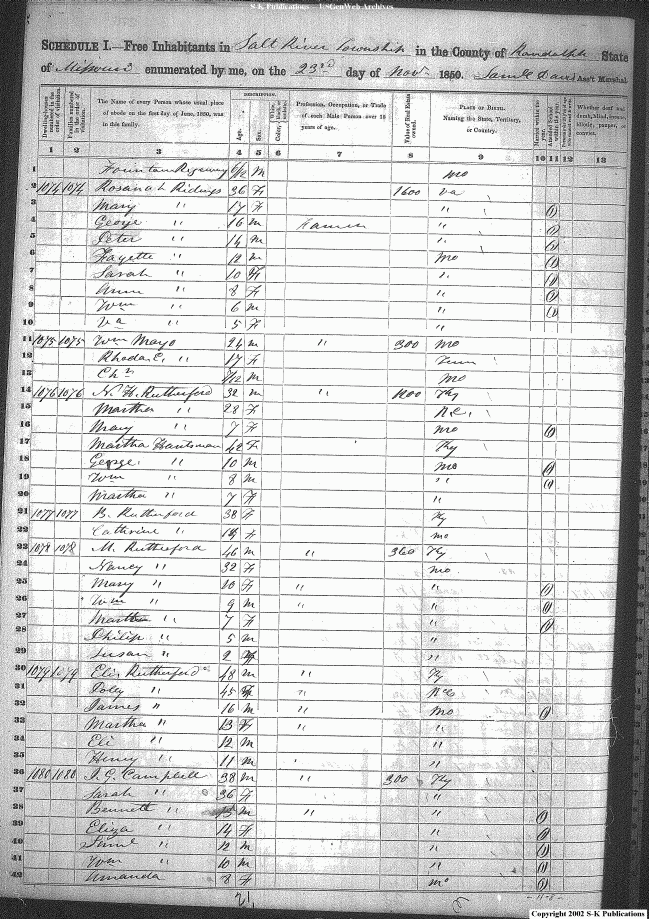 S-K Publications - USGenWeb Archives
SCHEDULE I.—Free Inhabitants in Salt River Township in the County of Randolph State
of Missouri enumerated by me, on the 23rd day of Nov. 1850. Ass't Marshal
DESCRIPTION.
Dwelling-houses numbered in the order of visitation. Families numbered in the order of visitation. The Name of every Person whose usual place of abode on the first day of June, 1850, was in this family. Age. Sex. Color, Profession, Occupation, or Trade of each Male Person over 15 years of age. Value of Real Estate owned. PLACE OF BIRTH. Naming the State, Territory, or Country. Married within the year. Attended School within the year. Whether deaf and dumb, blind, insane, idiotic, pauper, or convict.
1 2 3 4 5 6 7 8 9 10 11 12 13
1 Fountain 6/12 M Mo
2 1074 1074 Rosanah Ridings 36 F 1600 Va
3 Mary " 17 F " (1)
4 George " 16 M Farmer " (1)
5 Peter " 14 M " (1)
6 Fayette " 12 M Mo (1)
7 Sarah " 10 F " (1)
8 Ann " 8 F " (1)
9 Wm " 6 M " (1)
10 Va " 5 F "
11 1075 1075 Wm Mayo 24 M " 300 Mo
12 Rhoda E. " 17 F Tenn
13 Chs /12 M Mo
14 1076 1076 N. H. Rutherford 32 M " 1200 Ky
15 Martha " 28 F N.C.
16 Mary " 7 F Mo (1)
17 Martha Huntsman 42 F Ky
18 George " 10 M Mo (1)
19 Wm " 8 M " (1)
20 Martha " 7 F "
21 1077 1077 B. Rutherford 38 F Ky
22 Cathrine " F Mo
23 1078 1078 M. Rutherford 46 M " 360 Ky
24 Nancy " 32 F Mo
25 Mary " 10 F " " (1)
26 Wm " 9 M " " (1)
27 Martha " 7 F " (1)
28 Philip " 5 M "
29 Susan " 2 F "
30 1079 1079 Eli Rutherford 48 M " Ky
31 Polly " 45 F " N.C.
32 James " 16 M " Mo (1)
33 Martha " 13 F "
34 Eli " 12 M "
35 Henry " 11 M "
36 1080 1080 J. G. Campbell 38 M " 300 Ky
37 Sarah " 36 F "
38 Bennett " 15 M " " (1)
39 Eliza " 14 F " (1)
40 " 12 M " (1)
41 Wm " 10 M " (1)
42 Amanda 8 F Mo (1)
Copyright 2002 S-K Publications